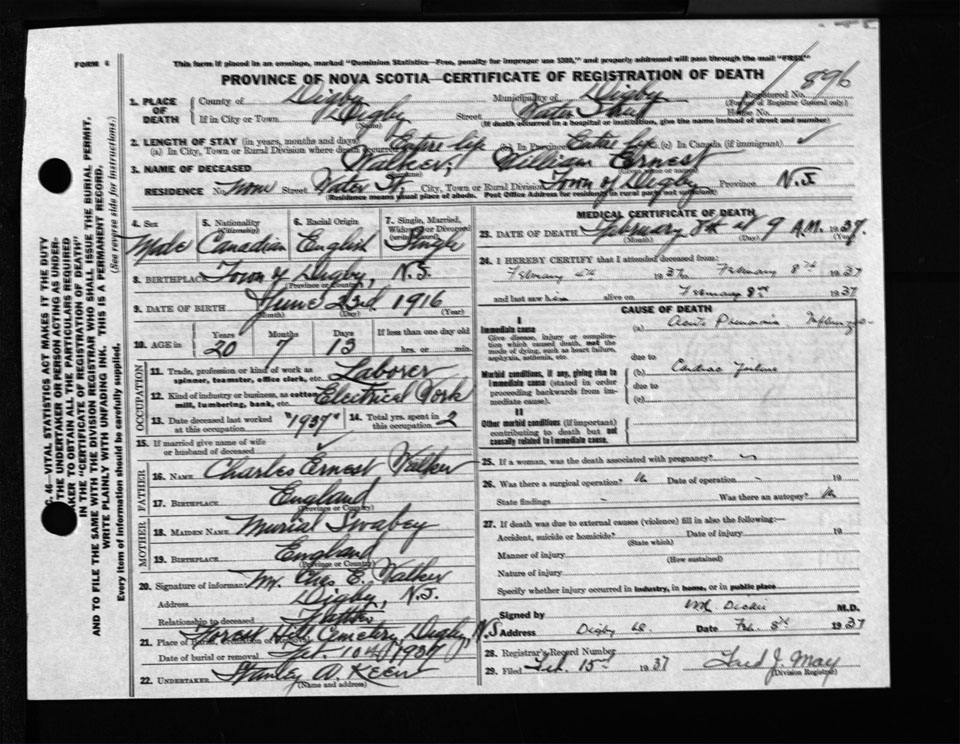 FORM 4
This form if placed in an envelope, marked "Dominion Statistics—Free, penalty for improper use $300," and properly addressed will pass through the mail "FREE"
PROVINCE OF NOVA SCOTIA—CERTIFICATE OF REGISTRATION OF DEATH
896
Registered No.
(For use of Registrar General only)
1. PLACE OF DEATH
County of Digby Municipality of Digby
If in City or Town Digby Street Water Street House No.
(Name) (If death occurred in a hospital or institution, give the name instead of street and number)
2. LENGTH OF STAY (in years, months and days)
(a) In City, Town or Rural Division where death occurred Entire life (b) In Province Entire life (c) In Canada (if immigrant)
3. NAME OF DECEASED Walker, William Ernest
RESIDENCE No. None Street Water St. City, Town or Rural Division Town of Digby Province N.S
(Residence means usual place of abode. Post Office Address for residents in rural parts not sufficient)
4. Sex Male
5. Nationality (Citizenship) Canadian
6. Racial Origin English
7. Single, Married, Widowed or Divorced (write the word) Single
8. BIRTHPLACE Town of Digby, N.S.
(Province or Country)
9. DATE OF BIRTH June 23rd 1916
(Month) (Day) (Year)
10. AGE in Years 20 Months 7 Days 13 If less than one day old hrs. or min.
OCCUPATION
11. Trade, profession or kind of work as spinner, teamster, office clerk, etc. Laborer
12. Kind of industry or business, as cotton mill, lumbering, bank, etc. Electrical Work
13. Date deceased last worked at this occupation "1937"
14. Total yrs. spent in this occupation 2
15. If married give name of wife or husband of deceased
FATHER
16. NAME Charles Ernest Walker
17. BIRTHPLACE England
(Province or Country)
MOTHER
18. MAIDEN NAME Murial Swabey
19. BIRTHPLACE England
(Province or Country)
20. Signature of informant Mr. Chas E. Walker
Address Digby, N.S.
Relationship to deceased Father
21. Place of Burial, Cremation or Removal Forest Hill Cemetery Digby, N.S
Date of burial or removal Feb. 10th 1937
22. UNDERTAKER Stanley A. Keen
(Name and address)
MEDICAL CERTIFICATE OF DEATH
23. DATE OF DEATH February 8th at 9 A.M. 1937.
(Month) (Day)
24. I HEREBY CERTIFY that I attended deceased from:
February 4th 1937 to February 8th 1937
and last saw him alive on February 8th 1937
CAUSE OF DEATH
I
Immediate cause
Give disease, injury or complication which caused death, not the mode of dying, such as heart failure, asphyxia, asthenia, etc.
(a) Acute Pneumonia Influenza
due to
Morbid conditions, if any, giving rise to immediate cause (stated in order proceeding backwards from immediate cause).
(b) Cardiac Failure
due to
(c)
II
Other morbid conditions (if important) contributing to death but not causally related to immediate cause.
25. If a woman, was the death associated with pregnancy?
26. Was there a surgical operation? No Date of operation - 19
State findings - Was there an autopsy? No
27. If death was due to external causes (violence) fill in also the following:—
Accident, suicide or homicide? Date of injury 19
(State which)
Manner of injury
(How sustained)
Nature of injury
Specify whether injury occurred in industry, in home, or in public place
Signed by Dickie M.D.
Address Digby Date Feb. 8th 1937
28. Registrar's Record Number
29. Filed Feb. 15th 1937 J. May
(Division Registrar)
C. 46—VITAL STATISTICS ACT MAKES IT THE DUTY
THE UNDERTAKER OR PERSON ACTING AS UNDER-
TAKER TO OBTAIN ALL THE PARTICULARS REQUIRED
IN THE "CERTIFICATE OF REGISTRATION OF DEATH"
AND TO FILE THE SAME WITH THE DIVISION REGISTRAR WHO SHALL ISSUE THE BURIAL PERMIT.
WRITE PLAINLY WITH UNFADING INK. THIS IS A PERMANENT RECORD.
Every item of information should be carefully supplied. (See reverse side for instructions.)